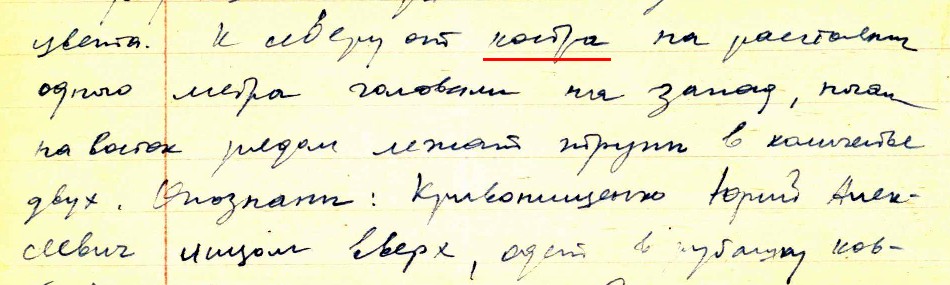 цвета. К северу от костра на расстоянии
одного метра головами на запад, ногами
на восток рядом лежат трупы в количестве
двух. Опознаны: Кривонищенко Юрий Алек-
сеевич лицом вверх, одет в рубашку ков-